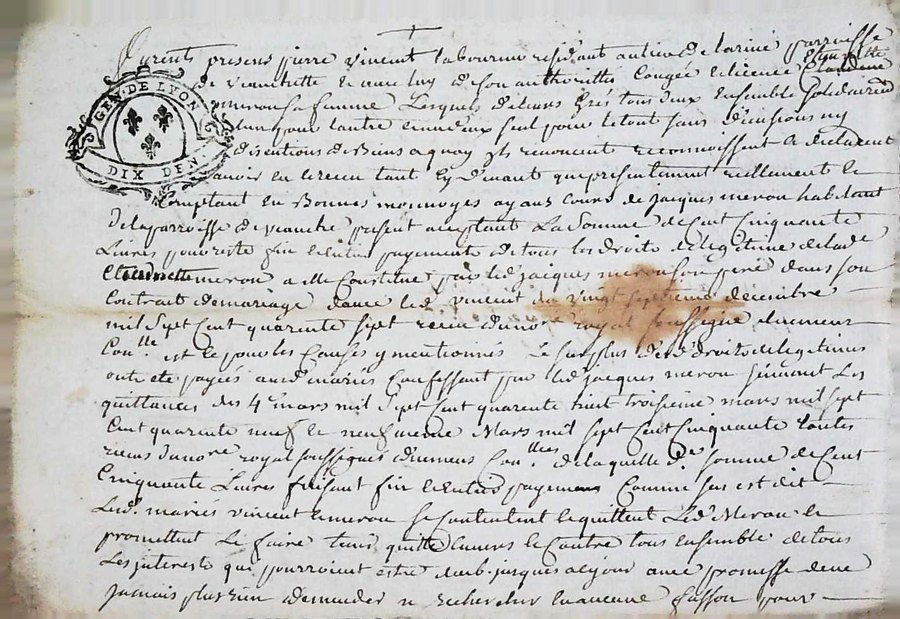 Furent presens pierre vincent laboureur residant au lieu de parroisse
de veauchette et avec luy de son authoritté Congée et licence
meron sa femme Lesquels de leurs grés tous deux Ensemble solidairem
GEN. DE LYON
lun pour lautre et un deux seul pour le tout sans divisions ny
DIX DEN.
discutions de Biens a quoy ils renoncent reconnoissent et declarent
avoir eu et receu tant cy devant que presentement reellement et
Comptant en Bonnes monnoyes ayans Cours de jacques meron habitant
de la parroisse de veauche present acceptant La Somme de Cent Cinquante
Livres pour reste fin et entier payement de tous les droits de legitime de lad
Claudinette meron a elle Constitué par led jacques meron son pere dans son
Contrait de mariage avec led vincent du vingt septieme decembre
mil sept Cent quarente sept receu du no.re royal soussigné
Con.lle est et pour les Causes y mentionnés Le surplus desd droits de legitimes
ont eté payés auxd mariés Confessant par led jacques meron suivant les
quittances des 4e mars mil sept Cent quarente huit troisieme mars mil sept
Cent quarente neuf et neufvieme Mars mil sept Cent Cinquante toutes
receus du no.re royal soussigné Con.lles de laquelle d.e somme de Cent
Cinquante Livres faisant fin et entier payement Comme sus est dit
Lesd. mariés vincent et meron se Contentent et quittent Led Meron et
promettent Le faire tenir quitte Envers et Contre tous ensemble de tous
Les interests qui pourroient estre dub jusques a ce jour avec promesse de ne
jamais plus rien demander n rechercher En aucune fasson pour